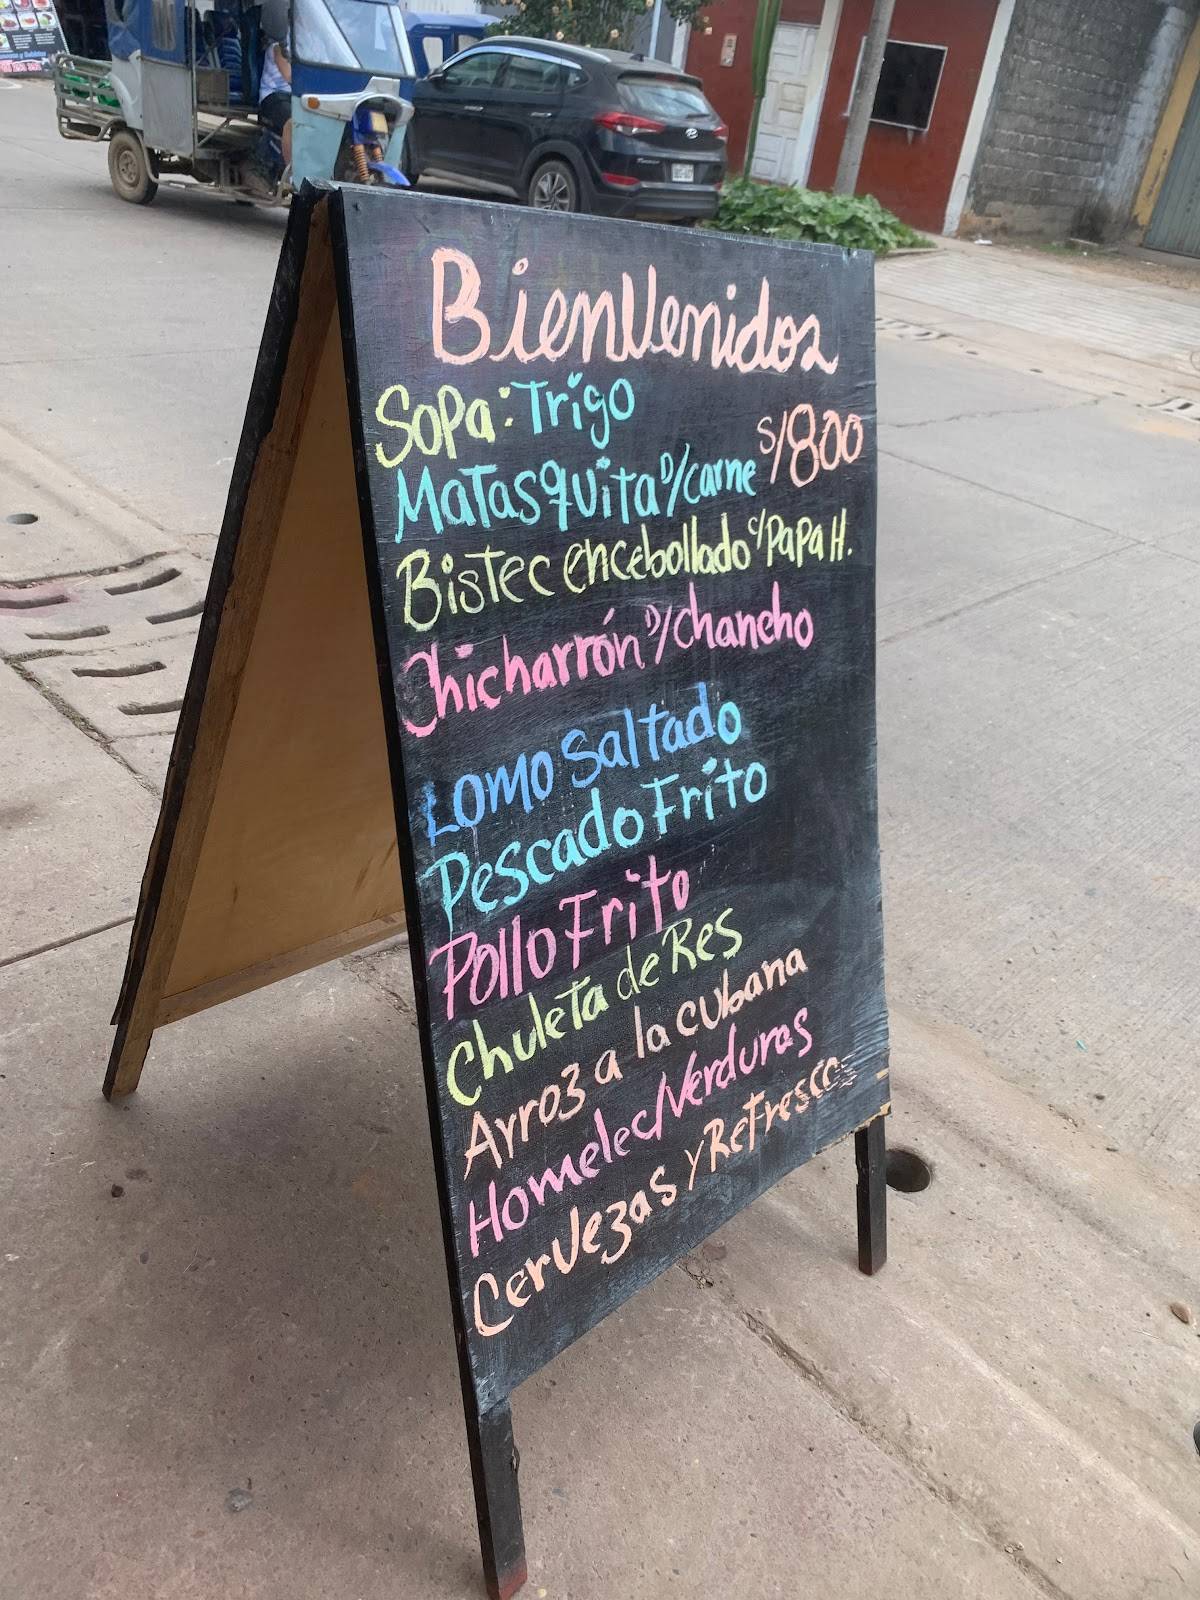 BienVenidos
Sopa: Trigo
Matasquita D/carne S/800
Bistec encebollado c/PaPa H.
Chicharrón D/Chancho
Lomo Saltado
Pescado Frito
Pollo Frito
Chuleta de Res
Arroz a la cubana
Homelec/Verduras
Cervezas y Refrescos